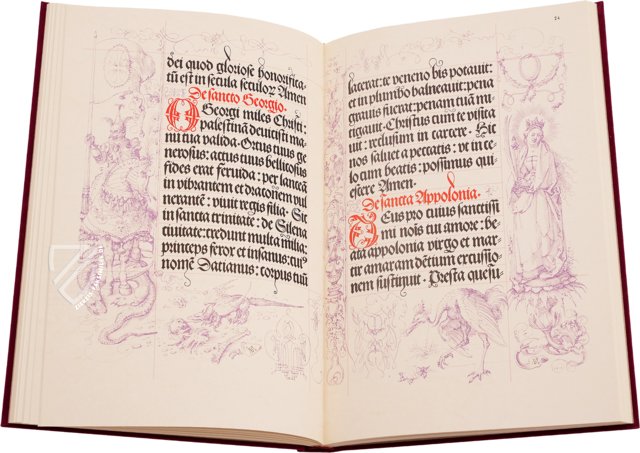 dei quod gloriose honorifica
tū est in secula seculoꝝ Amen
De sancto Georgio.
O Georgi miles Christi:
palestinā devicisti ma
nu tua valida. Ortus tuus ge
nerosus: actus tuus bellicosus
fides erat feruida: per lanceā
in vibrantem et draconem vul
nerantē: viuit regis filia. Sit
in sancta trinitate: de Silena
ciuitate: credunt multa milia:
princeps feror et insanus: cui
nomē Dacianus: corpus tuū
24
lacerat: te veneno bis potauit:
et in plumbo balneauit: pena
grauius fuerat: penam tuā mi
tigauit. Christus cum te visita
uit: reclusum in carcere. Hic
nos saluet a peccatis: vt in ce
lo cum beatis: possimus qui
escere Amen.
De sancta Appolonia.
Deus pro cuius sanctissi
mi nois tui amore: be
ata appolonia virgo et mar
tir amaram dētium excussio
nem sustinuit. Presta quesu